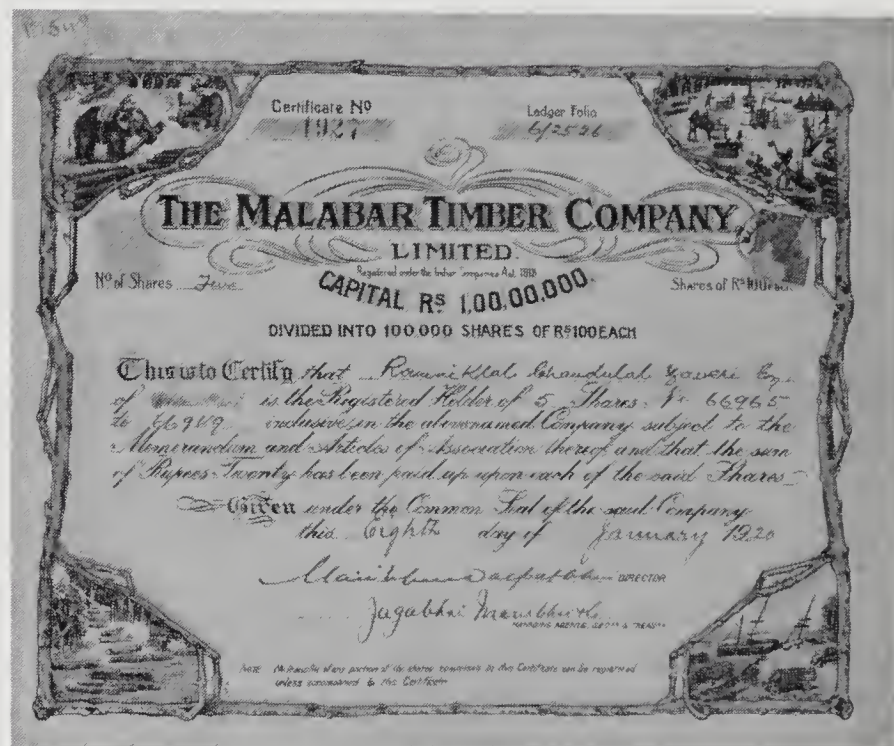 Certificate Nº
1927
Ledger Folio
6/2526
THE MALABAR TIMBER COMPANY
LIMITED.
Registered under the Indian Companies Act,
Nº of Shares Five
CAPITAL Rs 1,00,00,000.
Shares of Rs 100 each
DIVIDED INTO 100,000 SHARES OF Rs 100 EACH
This is to Certify that Chandulal Esq.
of is the Registered Holder of 5 Shares Nº 66965
to inclusive in the abovenamed Company subject to the
Memorandum and Articles of Association thereof and that the sum
of Rupees Twenty has been paid up upon each of the said Shares
Given under the Common Seal of the said Company
this Eighth day of January 1920
DIRECTOR
MANAGING AGENTS,
NOTE No transfer of any portion of the shares comprised in this Certificate can be registered
unless accompanied by this Certificate